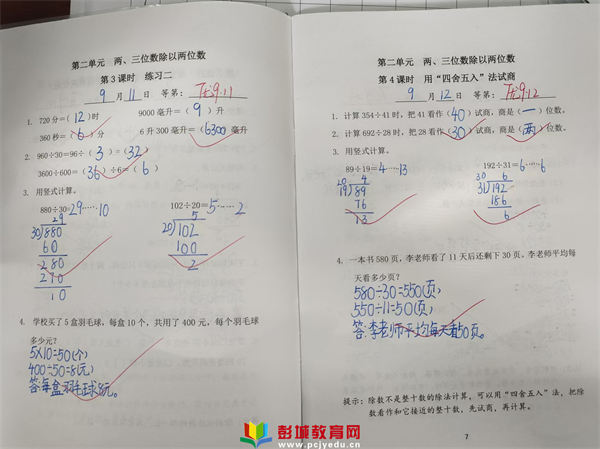 第二单元 两、三位数除以两位数
第3课时 练习二
9月11日 等第：优 9.11
1. 720分=（12）时 9000毫升=（9）升
360秒=（6）分 6升300毫升=（6300）毫升
2. 960÷30=96÷（3）=（32）
3600÷600=（36）÷6=（6）
3. 用竖式计算。
880÷30=29……10 102÷20=5……2
29 5
30)880 20)102
60 100
280 2
270
10
4. 学校买了5盒羽毛球，每盒10个，共用了400元，每个羽毛球
多少元？
5×10=50(个)
400÷50=8(元)
答:每盒羽毛球8元。
第二单元 两、三位数除以两位数
第4课时 用“四舍五入”法试商
9月12日 等第：优 9.12
1. 计算354÷41时，把41看作（40）试商，商是（一）位数。
2. 计算692÷28时，把28看作（30）试商，商是（两）位数。
3. 用竖式计算。
89÷19=4……13 192÷31=6……6
20 4 30 6
19)89 31)192
76 186
13 6
4. 一本书580页，李老师看了11天后还剩下30页。李老师平均每
天看多少页？
580-30=550(页)
550÷11=50(页)
答:李老师平均每天看50页。
提示：除数不是整十数的除法计算，可以用“四舍五入”法，把除
数看作和它接近的整十数，先试商，再计算。
7
彭城教育网
www.pcjyedu.cn